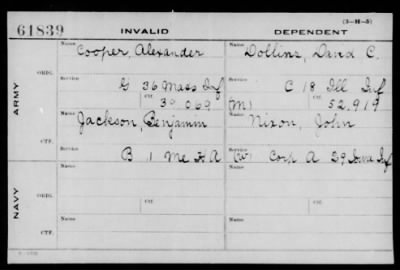 (3-H-5)
61839 INVALID DEPENDENT
Name Cooper, Alexander Name Dollins, David C.
ORIG.
Service G 36 Mass Inf Service C 18 Ill Inf
Ctf. 30,069 (M) Ctf. 52,919
ARMY
Name Jackson, Benjamin Name Nixon, John
CTF.
Service B 1 Me H A Service (W) Corp A 29 Iowa Inf
Name Name
ORIG.
Ctf. Ctf.
NAVY
Name Name
CTF.